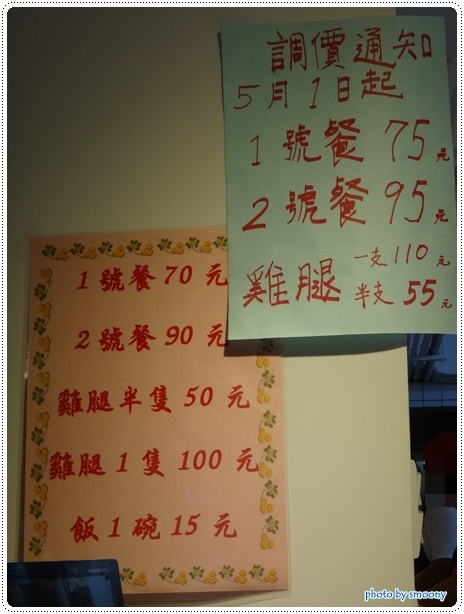 調價通知
5月1日起
1號餐 75元
2號餐 95元
雞腿 一支110元
半支 55元
1號餐 70 元
2號餐 90 元
雞腿半隻 50 元
雞腿 1 隻 100 元
飯 1 碗 15 元
photo by smoony